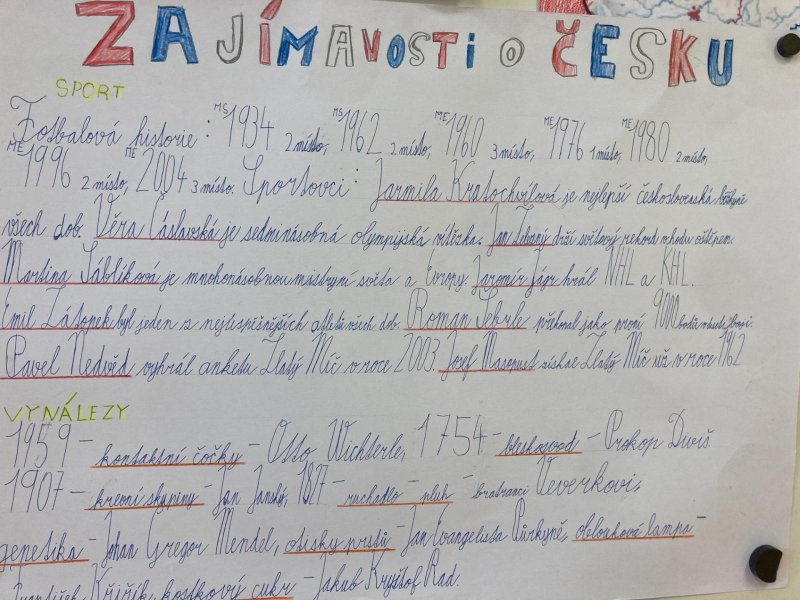 ZAJÍMAVOSTI O ČESKU
SPORT
Fotbalová historie: MS 1934 2 místo, MS 1962 2 místo, ME 1960 3 místo, ME 1976 1 místo, ME 1980 2 místo,
ME 1996 2 místo, ME 2004 3 místo. Sportovci: Jarmila Kratochvílová je nejlepší československá běžkyně
všech dob. Věra Čáslavská je sedminásobná olympijská vítězka. Jan Železný drží světový rekord v hodu oštěpem.
Martina Sáblíková je mnohonásobnou mistryní světa a Evropy. Jaromír Jágr hrál NHL a KHL.
Emil Zátopek byl jeden z nejúspěšnějších atletů všech dob. Roman Šebrle překonal jako první 9000 bodů
Pavel Nedvěd vyhrál anketu Zlatý Míč v roce 2003. Josef Masopust získal Zlatý Míč už v roce 1962
VYNÁLEZY
1959 - kontaktní čočky - Otto Wichterle, 1754 - bleskosvod - Prokop Diviš
1907 - krevní skupiny - Jan Janský, 1827 - ruchadlo - pluh - bratranci Veverkovi,
genetika - Johan Gregor Mendel, otisky prstů - Jan Evangelista Purkyně, oblouková lampa -
František Křižík, kostkový cukr - Jakub Kryštof Rad.